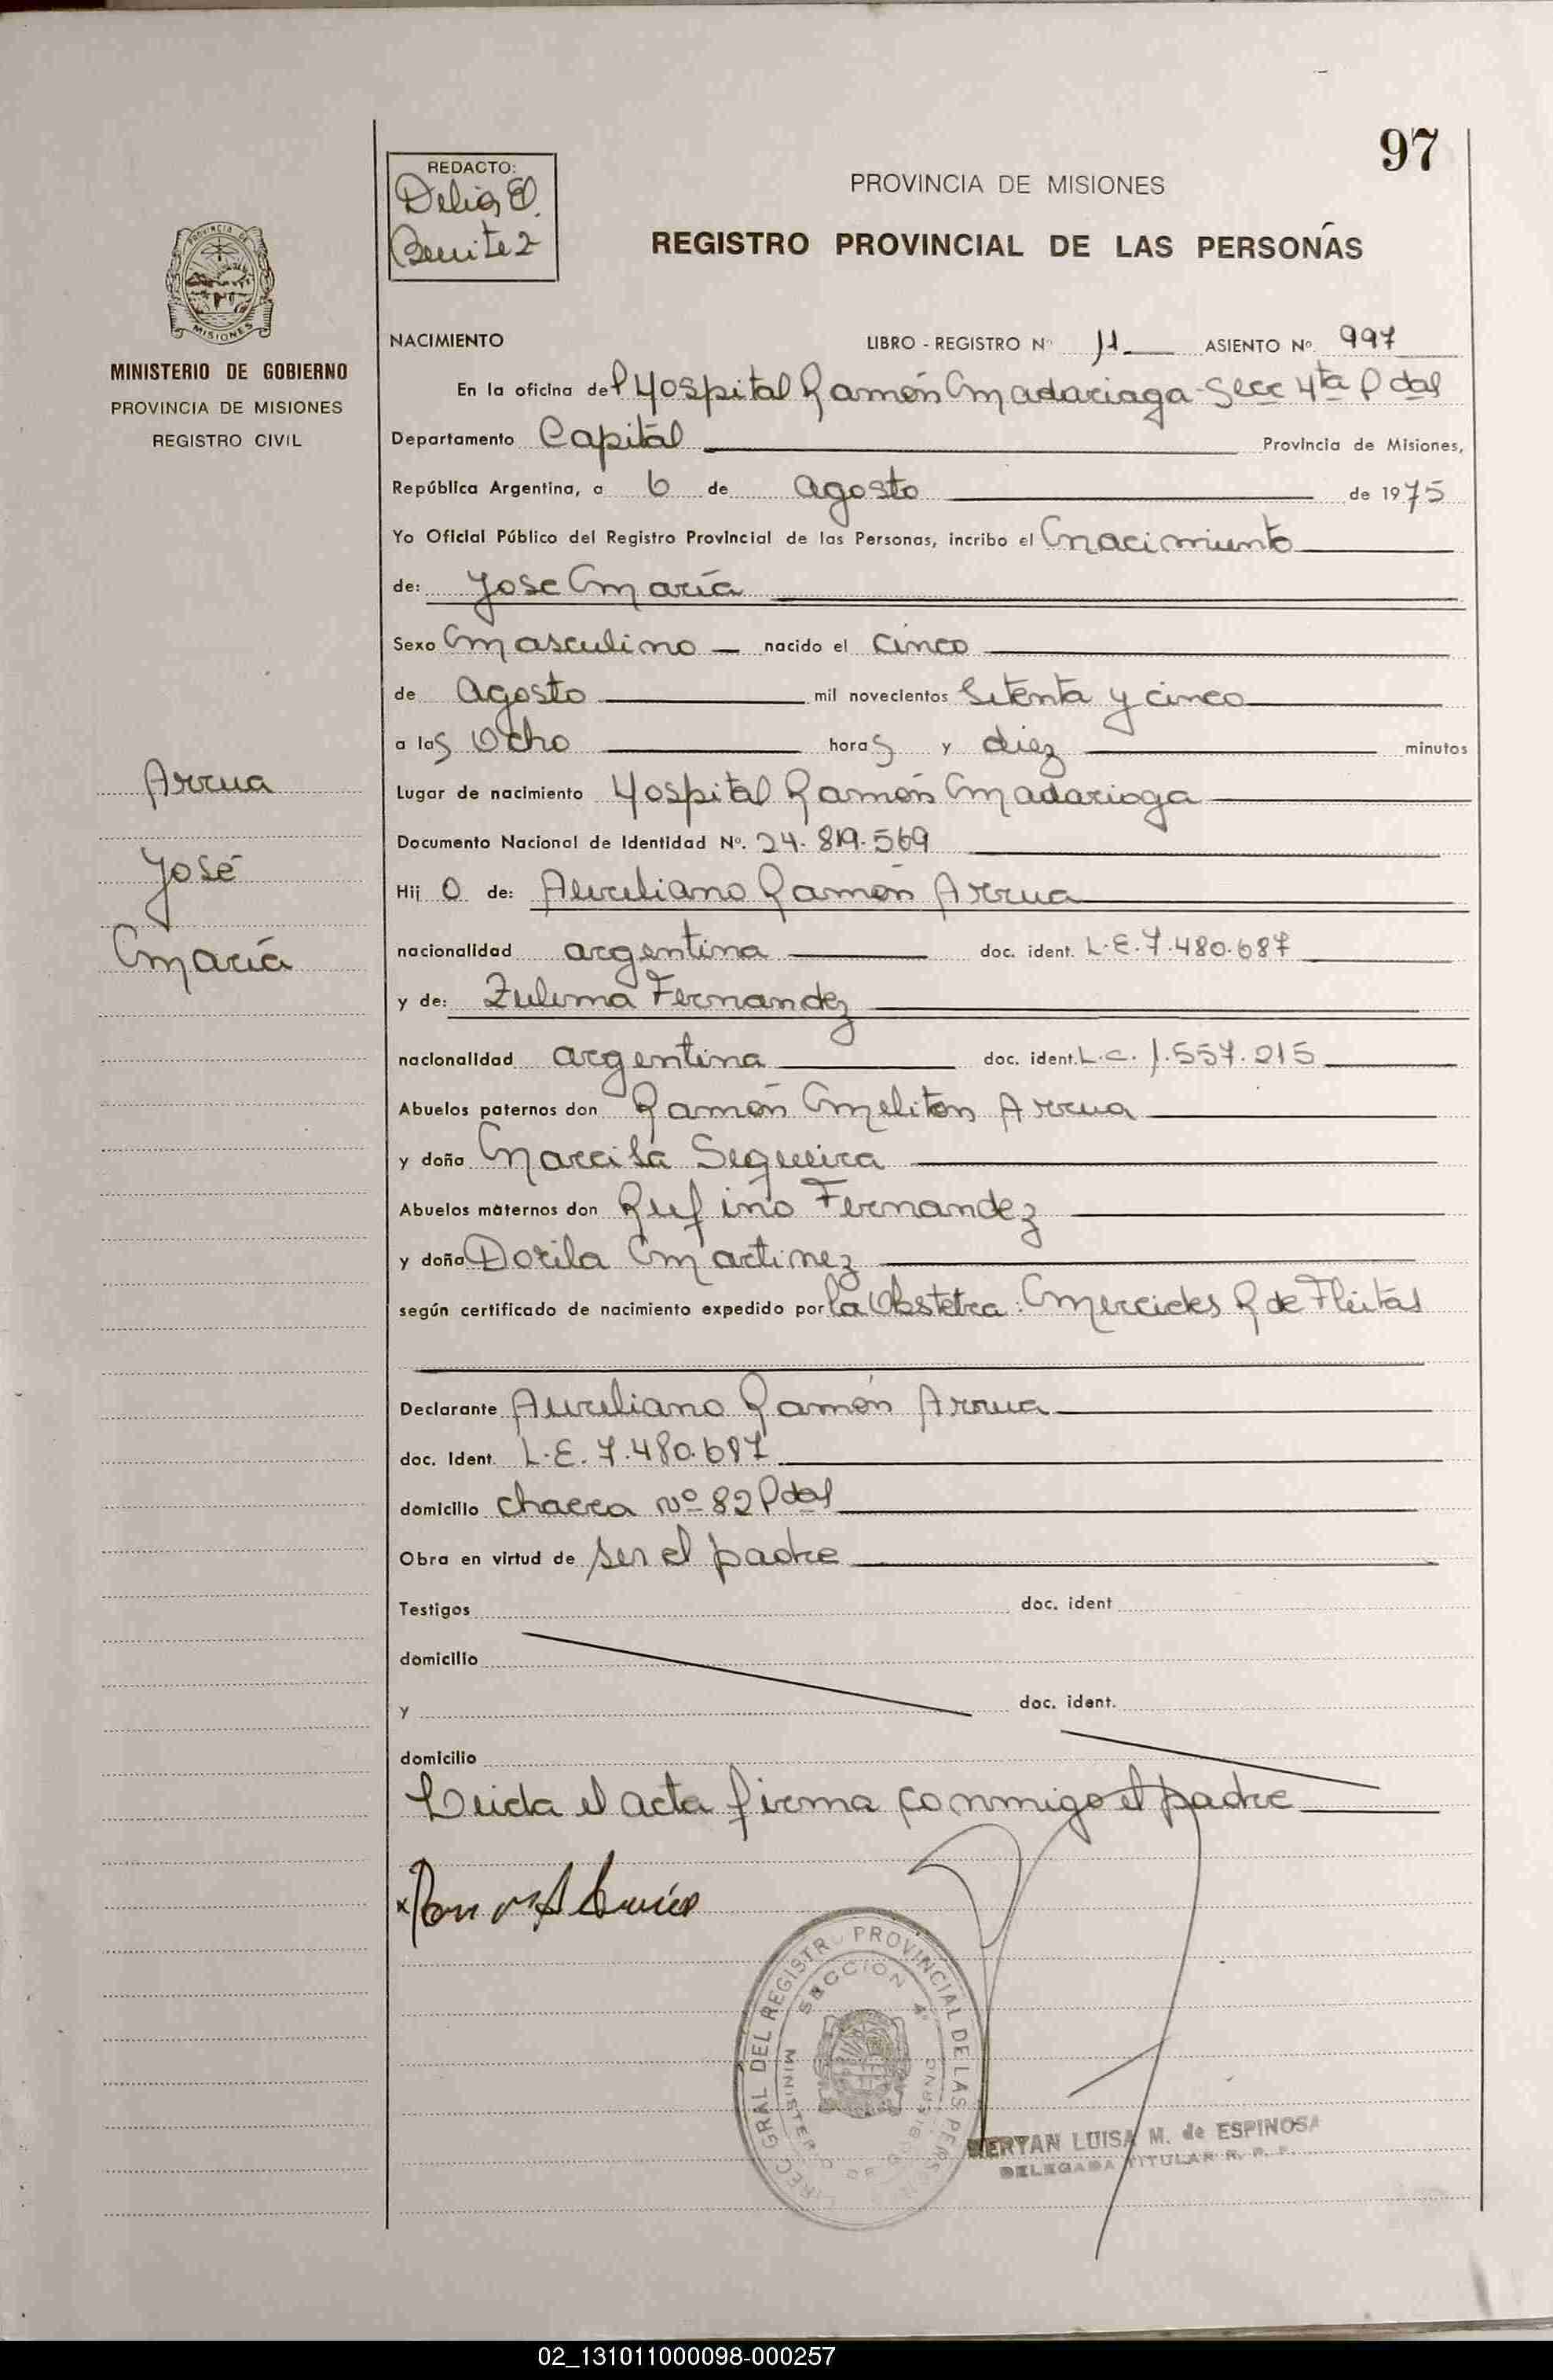 97
REDACTO:
Delia E.
Benitez
PROVINCIA DE MISIONES
REGISTRO PROVINCIAL DE LAS PERSONAS
PROVINCIA DE
MISIONES
MINISTERIO DE GOBIERNO
PROVINCIA DE MISIONES
REGISTRO CIVIL
NACIMIENTO LIBRO - REGISTRO Nº 11 ASIENTO Nº 997
En la oficina del Hospital Ramón Madariaga - Secc 4ta Pdas
Departamento Capital Provincia de Misiones,
República Argentina, a 6 de agosto de 1975
Yo Oficial Público del Registro Provincial de las Personas, incribo el nacimiento
de: Jose María
Sexo masculino nacido el cinco
de agosto mil novecientos setenta y cinco
a las ocho horas y diez minutos
Arrua
José
María
Lugar de nacimiento Hospital Ramón Madariaga
Documento Nacional de Identidad Nº. 24.819.569
Hij o de: Aureliano Ramón Arrua
nacionalidad argentina doc. ident. L.E. 7.480.687
y de: Zulema Fernandez
nacionalidad argentina doc. ident. L.C. 1.557.215
Abuelos paternos don Ramón Meliton Arrua
y doña Marcila Sequeira
Abuelos maternos don Rufino Fernandez
y doña Dorila Martinez
según certificado de nacimiento expedido por la Obstetra: Mercedes R de Fleitas
Declarante Aureliano Ramón Arrua
doc. Ident. L.E. 7.480.687
domicilio chacra Nº 82 Pdas
Obra en virtud de ser el padre
Testigos doc. ident
domicilio
y doc. ident.
domicilio
Leida el acta firma conmigo el padre
x
DIREC GRAL DEL REGISTRO PROVINCIAL DE LAS PERSONAS
SECCION 4ª
MINISTERIO DE GOBIERNO
MERYAN LUISA M. de ESPINOSA
DELEGADA TITULAR R. P. P.
02_131011000098-000257